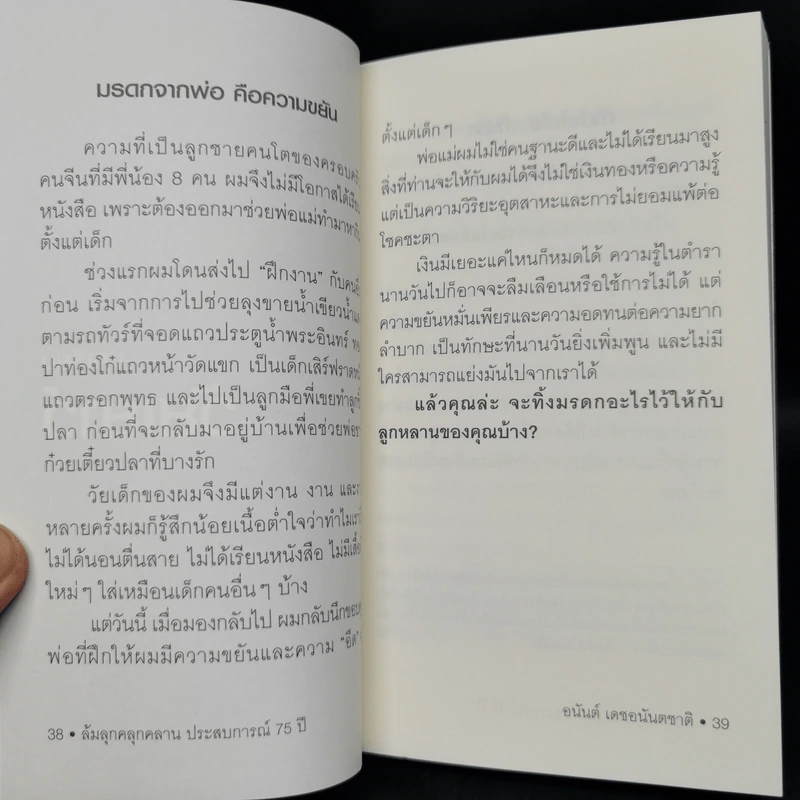 มรดกจากพ่อ คือความขยัน
ความที่เป็นลูกชายคนโตของครอบครั
คนจีนที่มีพี่น้อง 8 คน ผมจึงไม่มีโอกาสได้เรีย
หนังสือ เพราะต้องออกมาช่วยพ่อแม่ทำมาหากิ
ตั้งแต่เด็ก
ช่วงแรกผมโดนส่งไป “ฝึกงาน” กับคนอื่
ก่อน เริ่มจากการไปช่วยลุงขายน้ำเขียวน้ำแ
ตามรถทัวร์ที่จอดแถวประตูน้ำพระอินทร์
ปาท่องโก๋แถวหน้าวัดแขก เป็นเด็กเสิร์ฟราดห
แถวตรอกพุทธ และไปเป็นลูกมือพี่เขยทำลูกชิ้
ปลา ก่อนที่จะกลับมาอยู่บ้านเพื่อช่วยพ่อ
ก๋วยเตี๋ยวปลาที่บางรัก
วัยเด็กของผมจึงมีแต่งาน งาน และ
หลายครั้งผมก็รู้สึกน้อยเนื้อต่ำใจว่าทำไมเรา
ไม่ได้นอนตื่นสาย ไม่ได้เรียนหนังสือ ไม่มีเสื้
ใหม่ๆ ใส่เหมือนเด็กคนอื่นๆ บ้าง
แต่วันนี้ เมื่อมองกลับไป ผมกลับนึกขอบ
พ่อที่ฝึกให้ผมมีความขยันและความ “อึด”
38 • ล้มลุกคลุกคลาน ประสบการณ์ 75 ปี
ตั้งแต่เด็กๆ
พ่อแม่ผมไม่ใช่คนฐานะดีและไม่ได้เรียนมาสูง
สิ่งที่ท่านจะให้กับผมได้จึงไม่ใช่เงินทองหรือความรู้
แต่เป็นความวิริยะอุตสาหะและการไม่ยอมแพ้ต่อ
โชคชะตา
เงินมีเยอะแค่ไหนก็หมดได้ ความรู้ในตำรา
นานวันไปก็อาจจะลืมเลือนหรือใช้การไม่ได้ แต่
ความขยันหมั่นเพียรและความอดทนต่อความยาก
ลำบาก เป็นทักษะที่นานวันยิ่งเพิ่มพูน และไม่มี
ใครสามารถแย่งมันไปจากเราได้
แล้วคุณล่ะ จะทิ้งมรดกอะไรไว้ให้กับ
ลูกหลานของคุณบ้าง?
อนันต์ เดชอนันตชาติ • 39